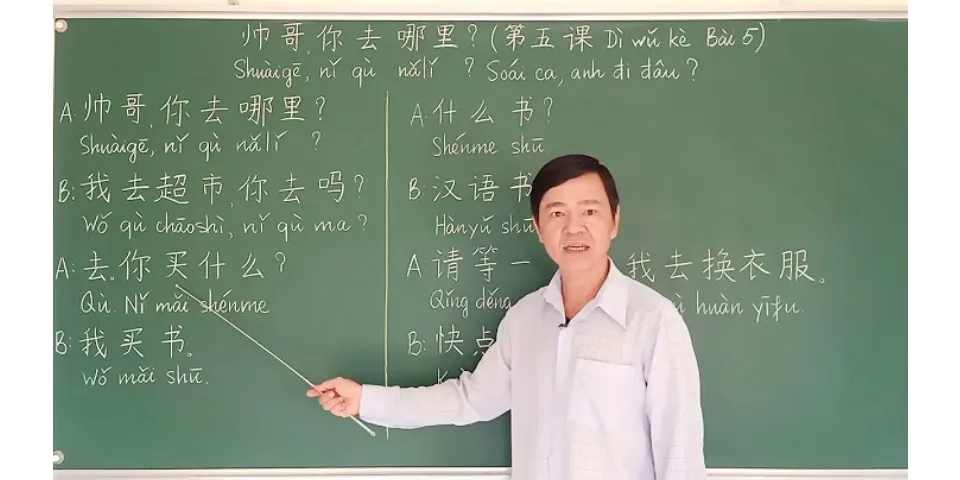 帅哥,你去哪里?(第五课 Dì wǔ kè Bài 5)
Shuàigē, nǐ qù nǎlǐ ? Soái ca, anh đi đâu ?
A: 帅哥,你去哪里?
Shuàigē, nǐ qù nǎlǐ ?
B: 我去超市,你去吗?
Wǒ qù chāoshì, nǐ qù ma ?
A: 去。你买什么?
Qù. Nǐ mǎi shénme
B: 我买书。
Wǒ mǎi shū.
A: 什么书?
Shénme shū
B: 汉语书
Hànyǔ shū
A: 请等一 我去换衣服。
Qǐng děng huàn yīfu.
B: 快点